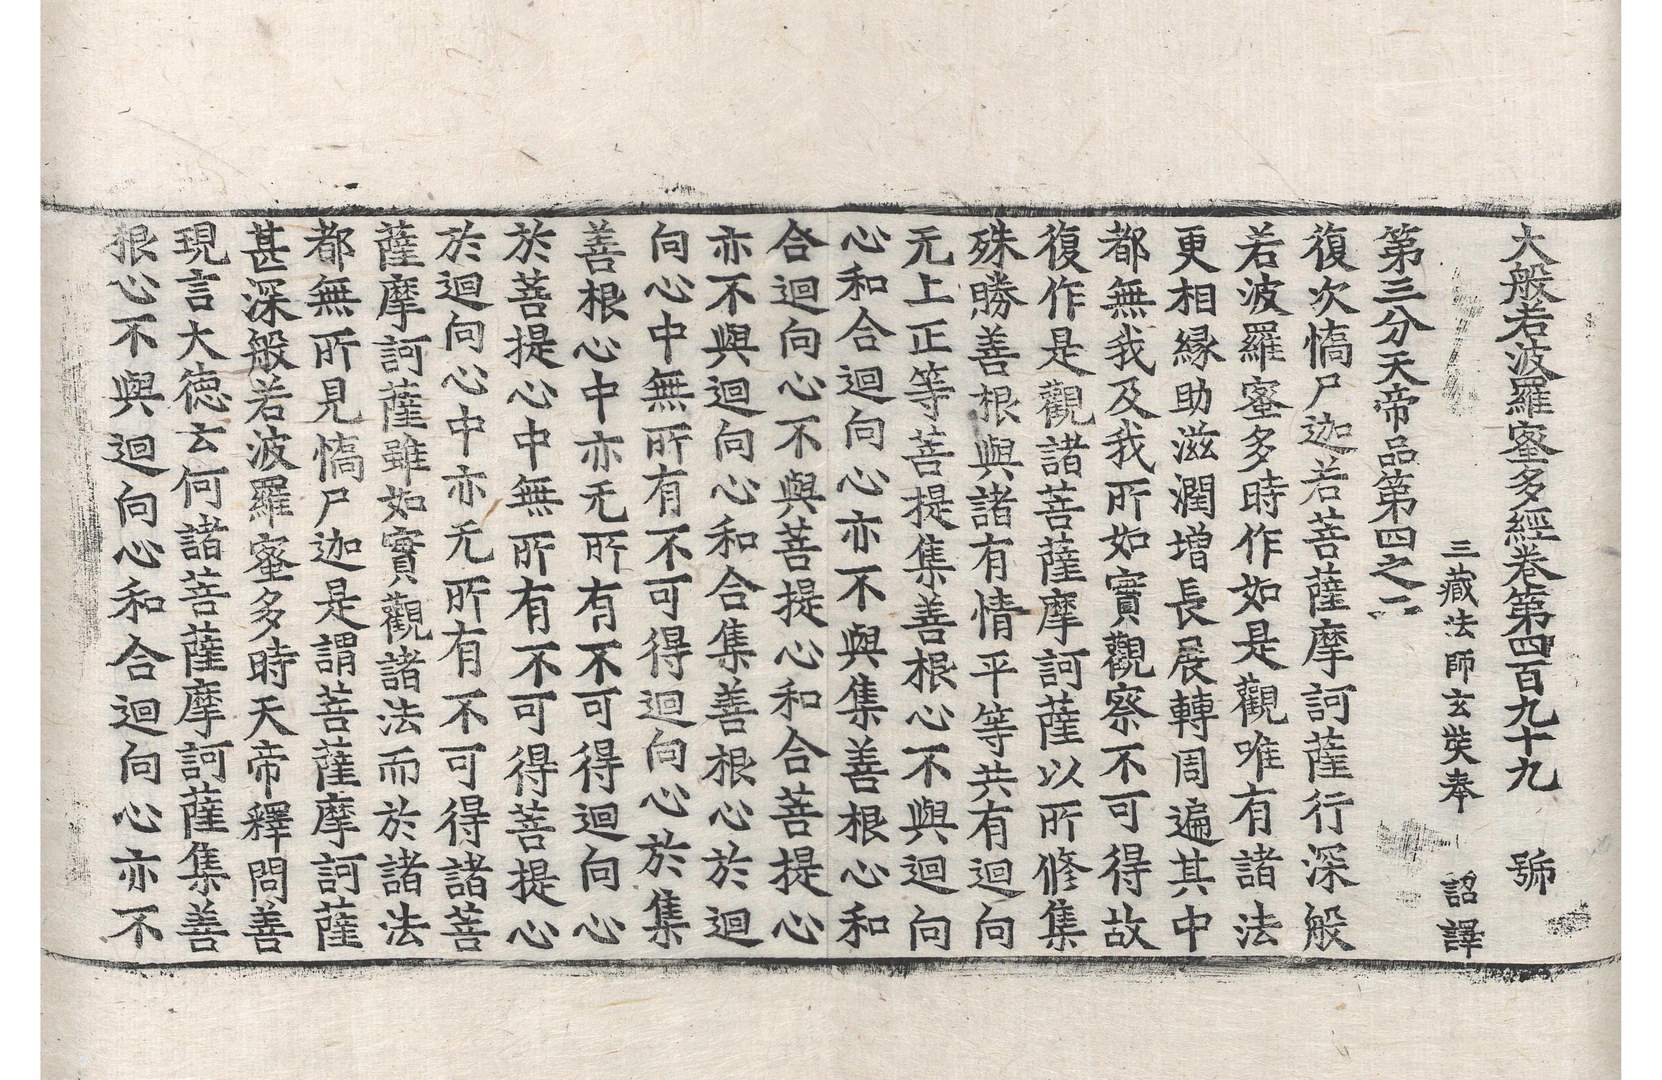 大般若波羅蜜多經卷第四百九十九　號
三藏法師玄奘奉　詔譯
第三分天帝品第四之二
復次憍尸迦若菩薩摩訶薩行深般
若波羅蜜多時作如是觀唯有諸法
更相緣助滋潤增長展轉周遍其中
都無我及我所如實觀察不可得故
復作是觀諸菩薩摩訶薩以所修集
殊勝善根與諸有情平等共有迴向
无上正等菩提集善根心不與迴向
心和合迴向心亦不與集善根心和
合迴向心不與菩提心和合菩提心
亦不與迴向心和合集善根心於迴
向心中無所有不可得迴向心於集
善根心中亦无所有不可得迴向心
於菩提心中無所有不可得菩提心
於迴向心中亦无所有不可得諸菩
薩摩訶薩雖如實觀諸法而於諸法
都無所見憍尸迦是謂菩薩摩訶薩
甚深般若波羅蜜多時天帝釋問善
現言大德云何諸菩薩摩訶薩集善
根心不與迴向心和合迴向心亦不